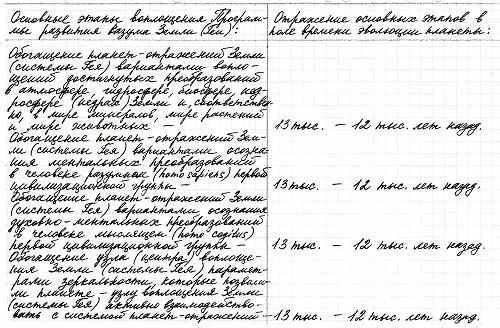 Основные этапы воплощения Програм-
мы развития разума Земли (Геи):
Отражение основных этапов в
поле времени эволюции планеты:
Обогащение планет-отражений Земли
(системы Гея) вариантами вопло-
щений достигнутых преобразований
в атмосфере, гидросфере, биосфере, яд-
росфере (недрах) Земли и, соответствен-
но, в мире минералов, мире растений
и мире животных – 13 тыс. – 12 тыс. лет назад.
Обогащение планет-отражений Зем-
ли (системы Гея) вариантами осозна-
ния ментальных преобразований
в человеке разумном (homo sapiens) первой
цивилизационной группы – 13 тыс. – 12 тыс. лет назад.
Обогащение планет-отражений Земли
(системы Гея) вариантами осознания
духовно-ментальных преобразований
в человеке мыслящем (homo cogitus)
первой цивилизационной группы – 13 тыс. – 12 тыс. лет назад.
Обогащение узла (центра) воплоще-
ния Земли (системы Гея) парамет-
рами зеркальности, которые позволи-
ли планете – узлу воплощения Земли
(системы Гея) активно взаимодейство-
вать с системой планет-отражений – 13 тыс. – 12 тыс. лет назад.